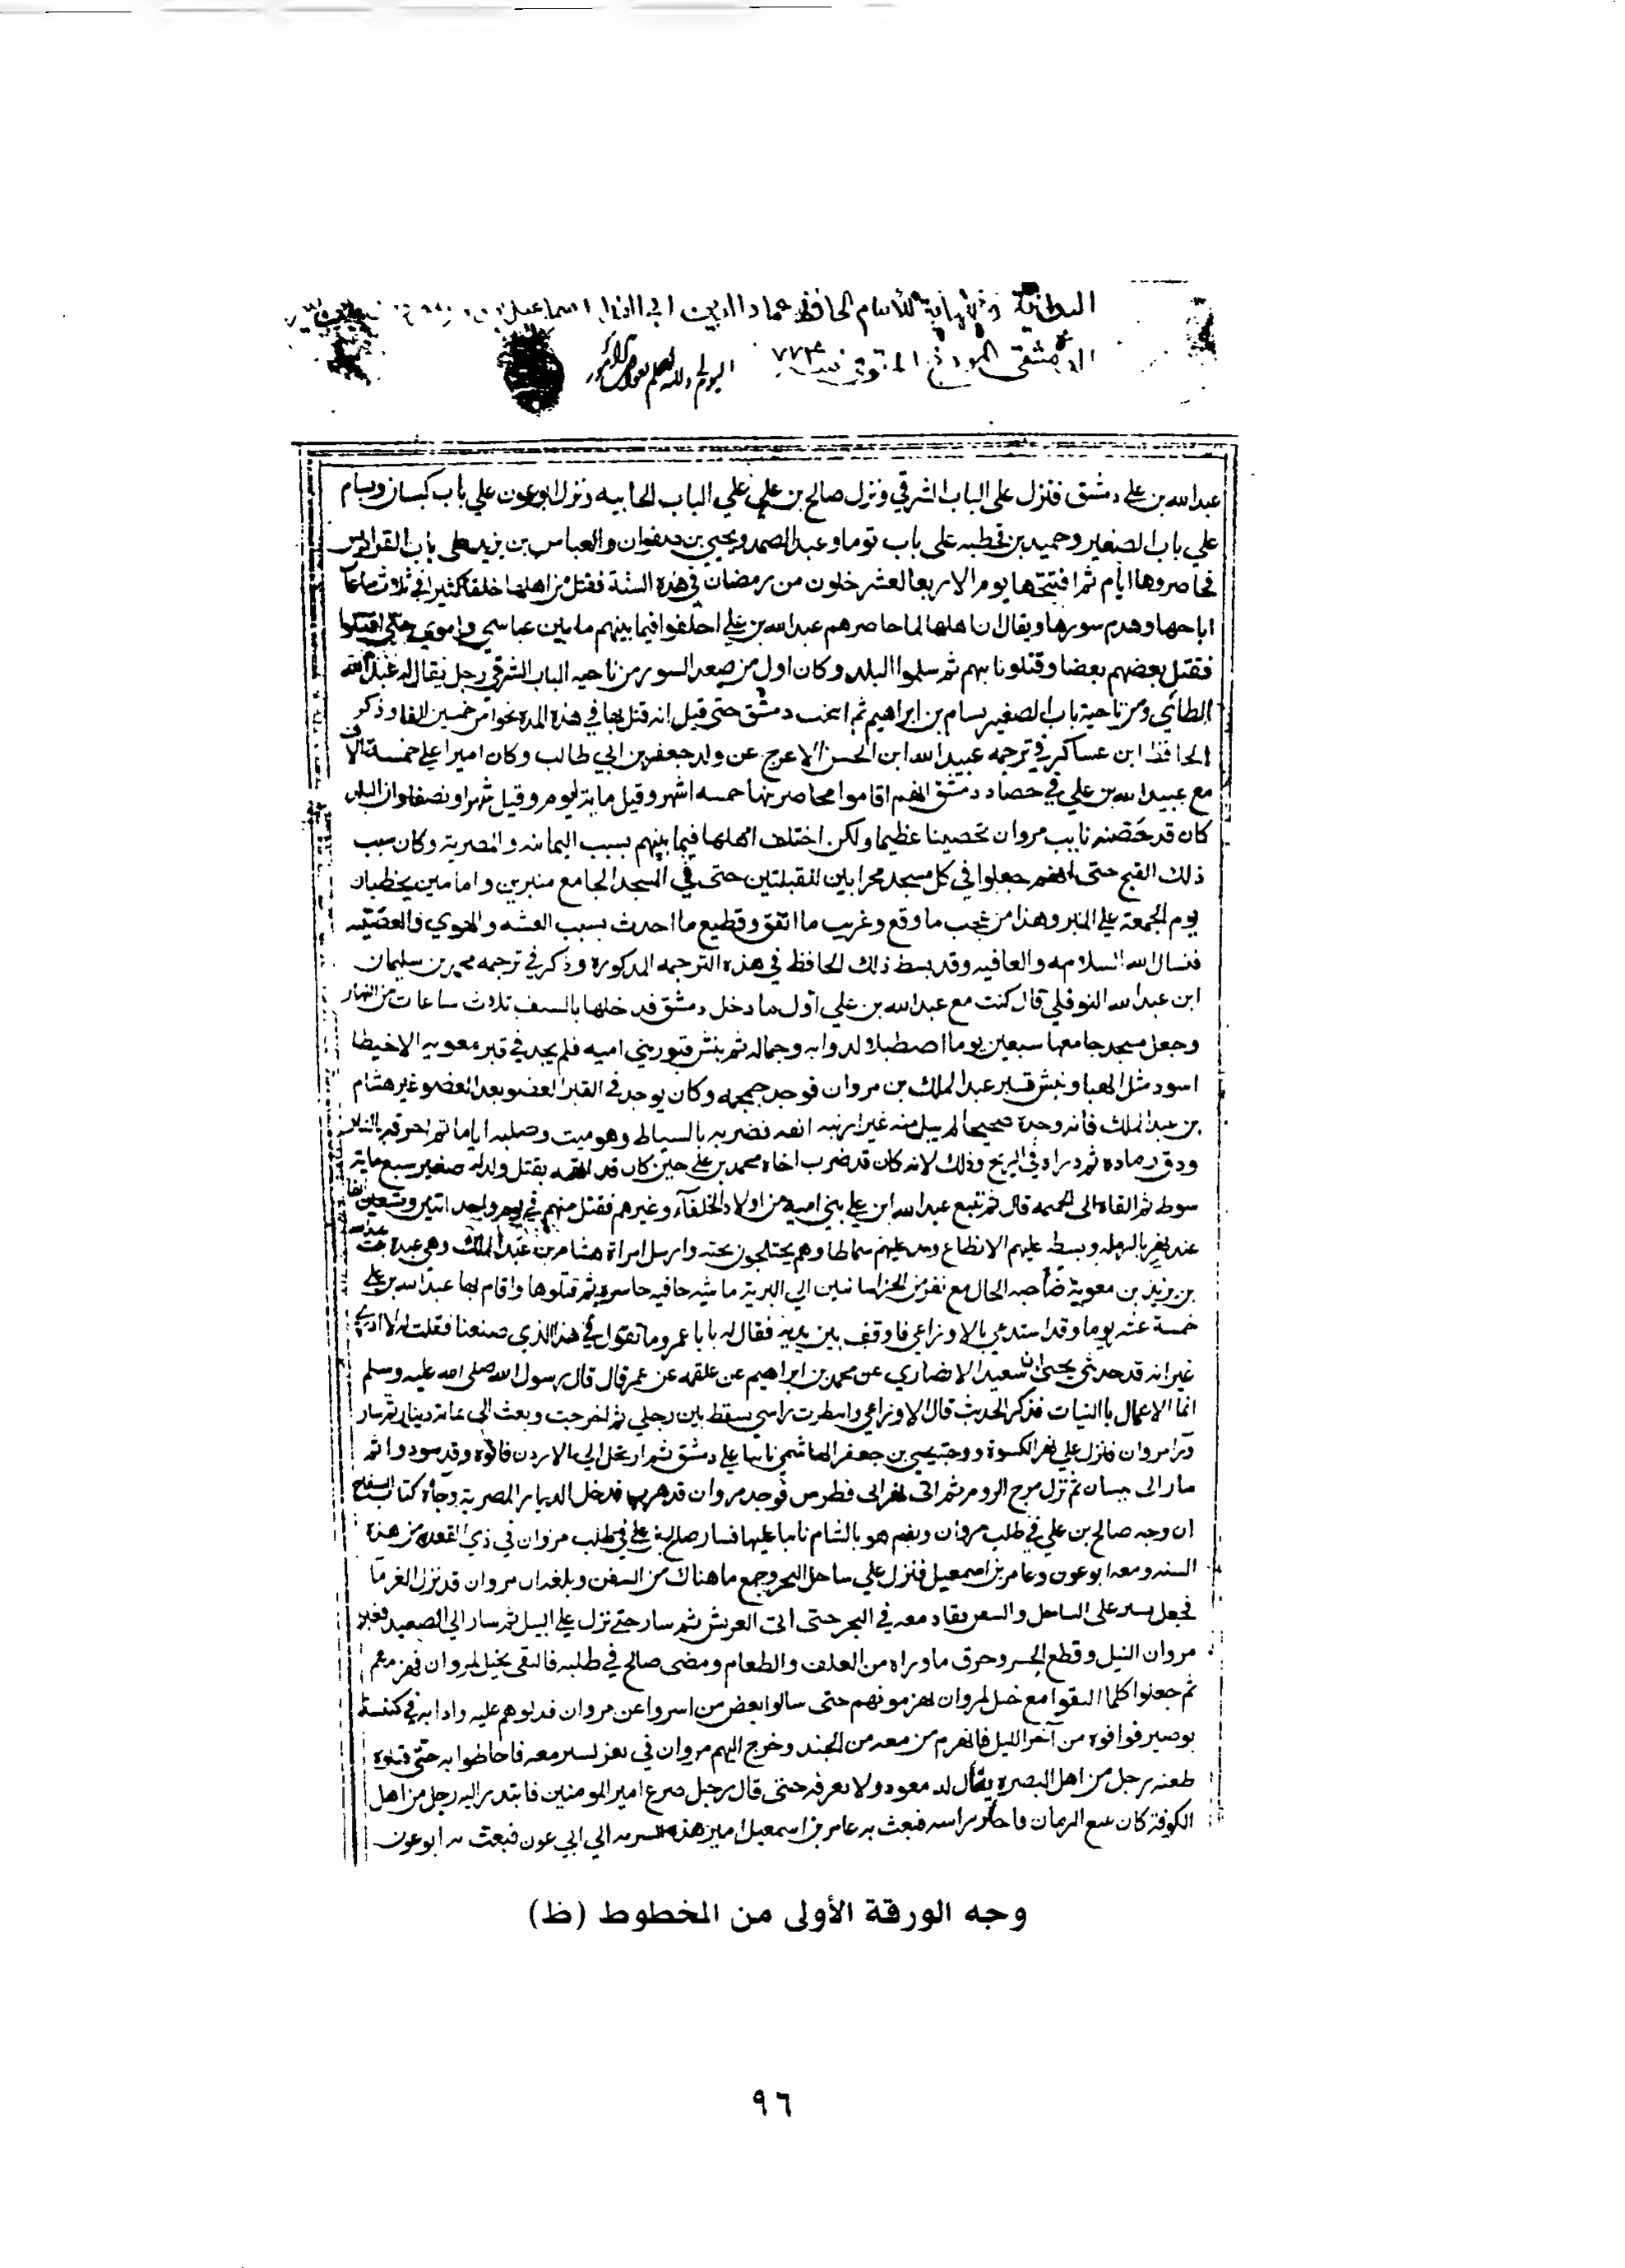 البداية والنهاية للامام الحافظ عماد الدين ابي الفدا اسماعيل بن
الدمشقي المورخ المتوفى سنة ٧٧٤
عبدالله بن علي دمشق فنزل على الباب الشرقي ونزل صالح بن علي علي الباب الجابيه ونزل ابو عون علي باب كيسان وبسام
علي باب الصغير وحميد بن قحطبه على باب توما وعبد الصمد ويحيي بن صفوان والعباس بن يزيد على باب الفراديس
فحاصروها ايام ثم افتتحها يوم الاربعا لعشر خلون من رمضان في هذه السنة فقتل من اهلها خلقا كثيرا في ثلاث ساعات
اباحها وهدم سورها ويقال ان اهلها لما حاصرهم عبدالله بن علي اختلفوا فيما بينهم ما بين عباسي واموي حتى اقتتلوا
فقتل بعضهم بعضا وقتلوا نايبهم ثم سلموا البلد وكان اول من صعد السور من ناحيه الباب الشرقي رجل يقال له عبدالله
الطائي ومن ناحية باب الصغير بسام بن ابراهيم ثم ابيحت دمشق حتى قيل انه قتل بها في هذه المدة نحوا من خمسين الفا وذكر
الحافظ ابن عساكر في ترجمه عبيد الله ابن الحسن الاعرج عن ولد جعفر بن ابي طالب وكان اميرا علي خمسة الاف
مع عبيدالله بن علي في حصار دمشق انهم اقاموا محاصرينها خمسه اشهر وقيل ماية يوم وقيل شهرا ونصفا وان البلد
كان قد حصنه نايب مروان تحصينا عظيما ولكن اختلف اهلها فيما بينهم بسبب اليمانيه والمضرية وكان سبب
ذلك الفتح حتى انهم جعلوا في كل مسجد محرابين للقبلتين حتى في المسجد الجامع منبرين وامامين يخطبان
يوم الجمعة علي المنبر وهذا من عجب ما وقع وغريب ما اتفق وفظيع ما احدث بسبب الفتنه والهوي والعصبيه
فنسال الله السلامه والعافيه وقد بسط ذلك الحافظ في هذه الترجمه المذكورة وذكر في ترجمه محمد بن سليمان
ابن عبدالله النوفلي قال كنت مع عبدالله بن علي اول ما دخل دمشق فدخلها بالسيف ثلاث ساعات من النهار
وجعل مسجد جامعها سبعين يوما اصطبلا لدوابه وجماله ثم نبش قبور بني اميه فلم يجد في قبر معوية الا خيطا
اسود مثل الهبا ونبش قبر عبد الملك بن مروان فوجد جمجمه وكان يوجد في القبر العضو بعد العضو غير هشام
بن عبد الملك فانه وجده صحيحا لم يبل منه غير ارنبه انفه فضربه بالسياط وهو ميت وصلبه اياما ثم احرقه بالنار
ودق رماده ثم ذراه في الريح وذلك لانه كان قد ضرب اخاه محمد بن علي حين كان قد اتهمه بقتل ولد له صغير سبع ماية
سوط ثم نفاه الى الحميمه قال ثم تتبع عبدالله ابن علي بني اميه من اولاد الخلفاء وغيرهم فقتل منهم في يوم واحد اثنين وتسعين الفا
عند نهر بالرمله وبسط عليهم الانطاع ومد عليهم سماطا وهم يختلجون تحته وارسل امراة هشام بن عبد الملك وهي عبدة بنت عبدالله
بن يزيد بن معوية صاحبه الخال مع نفر من الخراسانيين الي البرية ماشيه حافيه حاسرة ثم قتلوها واقام بها عبد الله بن علي
خمسة عشر يوما وقد استدعي بالاوزاعي فاوقف بين يديه فقال له يا ابا عمرو ما تقول في هذا الذي صنعنا فقلت له لا ادري
غير انه قد حدثني يحيى ابن سعيد الانصاري عن محمد بن ابراهيم عن علقمه عن عمر قال قال رسول الله صلى الله عليه وسلم
انما الاعمال باالنيات فذكر الحديث قال الاوزاعي وانتظرت راسي يسقط بين رجلي ثم اخرجت وبعث الى بماية دينار ثم سار
ورا مروان فنزل علي نهر الكسوة ووجه يحيي بن جعفر الهاشمي نايبا علي دمشق ثم ارتحل الي الاردن فاتوه وقد سودوا ثم
سار الى بيسان ثم نزل مرج الروم ثم اتى نهر ابى فطرس فوجد مروان قد هرب فدخل الديار المصرية وجاه كتاب السفاح
ان وجه صالح بن علي في طلب مروان ويقيم هو بالشام نايبا عليها فسار صالح بن علي في طلب مروان في ذي القعده من هذه
السنه ومعه ابو عون وعامر بن اسمعيل فنزل علي ساحل البحر وجمع ما هناك من السفن وبلغه ان مروان قد نزل الفرما
فجعل يسير على الساحل والسفن تقاد معه في البحر حتى اتى العريش ثم سار حتى نزل علي النيل ثم سار الي الصعيد فعبر
مروان النيل وقطع الجسر وحرق ما وراه من العلف والطعام ومضى صالح في طلبه فالتقى بخيل لمروان فهزمهم
ثم جعلوا كلما التقوا مع خيل لمروان يهزمونهم حتى سالوا بعض من اسروا عن مروان فدلوهم عليه واذا به في كنيسة
بوصير فوافوه من آخر الليل فانهزم من معه من الجند وخرج اليهم مروان في نفر يسير معه فاحاطوا به حتى قتلوه
طعنه رجل من اهل البصرة يقال له معود ولا يعرفه حتى قال رجل صرع امير المومنين فابتدر اليه رجل من اهل
الكوفة كان يبيع الرمان فاحتز راسه فبعث به عامر بن اسمعيل امير هذه السريه الي ابي عون فبعث به ابو عون
وجه الورقة الأولى من المخطوط (ظ)
٩٦